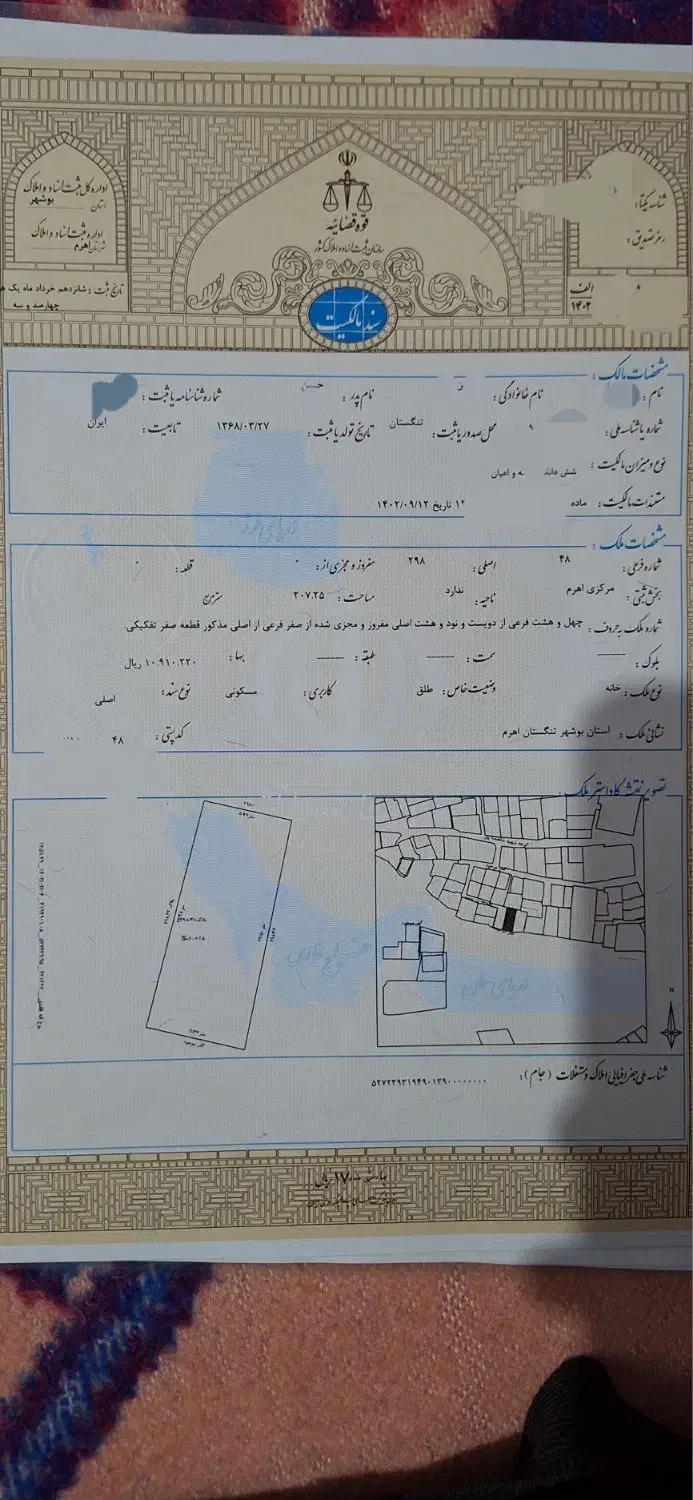 اداره کل ثبت اسناد و املاک
استان بوشهر
اداره ثبت اسناد و املاک
شهرستان اهرم
تاریخ ثبت : شانزدهم خرداد ماه یک ه
چهارصد و سه
قوه قضائیه
سازمان ثبت اسناد و املاک کشور
سند مالکیت
شناسه یکتا :
رمز تصدیق :
الف
۱۴۰۲
مشخصات مالک :
نام : نام خانوادگی : نام پدر : حسن شماره شناسنامه یا ثبت :
شماره یا شناسه ملی : محل صدور یا ثبت : تنگستان تاریخ تولد یا ثبت : ۱۳۶۸/۰۳/۲۷ تابعیت : ایران
نوع و میزان مالکیت : شش دانگ و اعیان
مستندات مالکیت : ماده ۱۴ تاریخ ۱۴۰۲/۰۹/۱۲
دریای خزر
مشخصات ملک :
شماره فرعی : ۴۸ اصلی : ۲۹۸ مفروز و مجزی از : ۰ قطعه : ۰
بخش ثبتی : مرکزی اهرم ناحیه : ندارد مساحت : ۲۰۷.۲۵ مترمربع
شماره ملک به حروف : چهل و هشت فرعی از دویست و نود و هشت اصلی مفروز و مجزی شده از صفر فرعی از اصلی مذکور قطعه صفر تفکیکی.
بلوک : —— سمت : —— طبقه : —— بها : ۱۰.۹۱۰.۲۲۰ ریال
نوع ملک : خانه وضعیت خاص : طلق کاربری : مسکونی نوع سند : اصلی
نشانی ملک : استان بوشهر تنگستان اهرم کد پستی : ۴۸
تصویر نقشه کاداستر ملک
خلیج فارس
دریای عمان
N
شناسه ملی جغرافیایی املاک و مستغلات (جام) : ۵۲۷۲۳۹۳۱۹۴۹۰۱۳۹۰۰۰۰۰۰۰۰